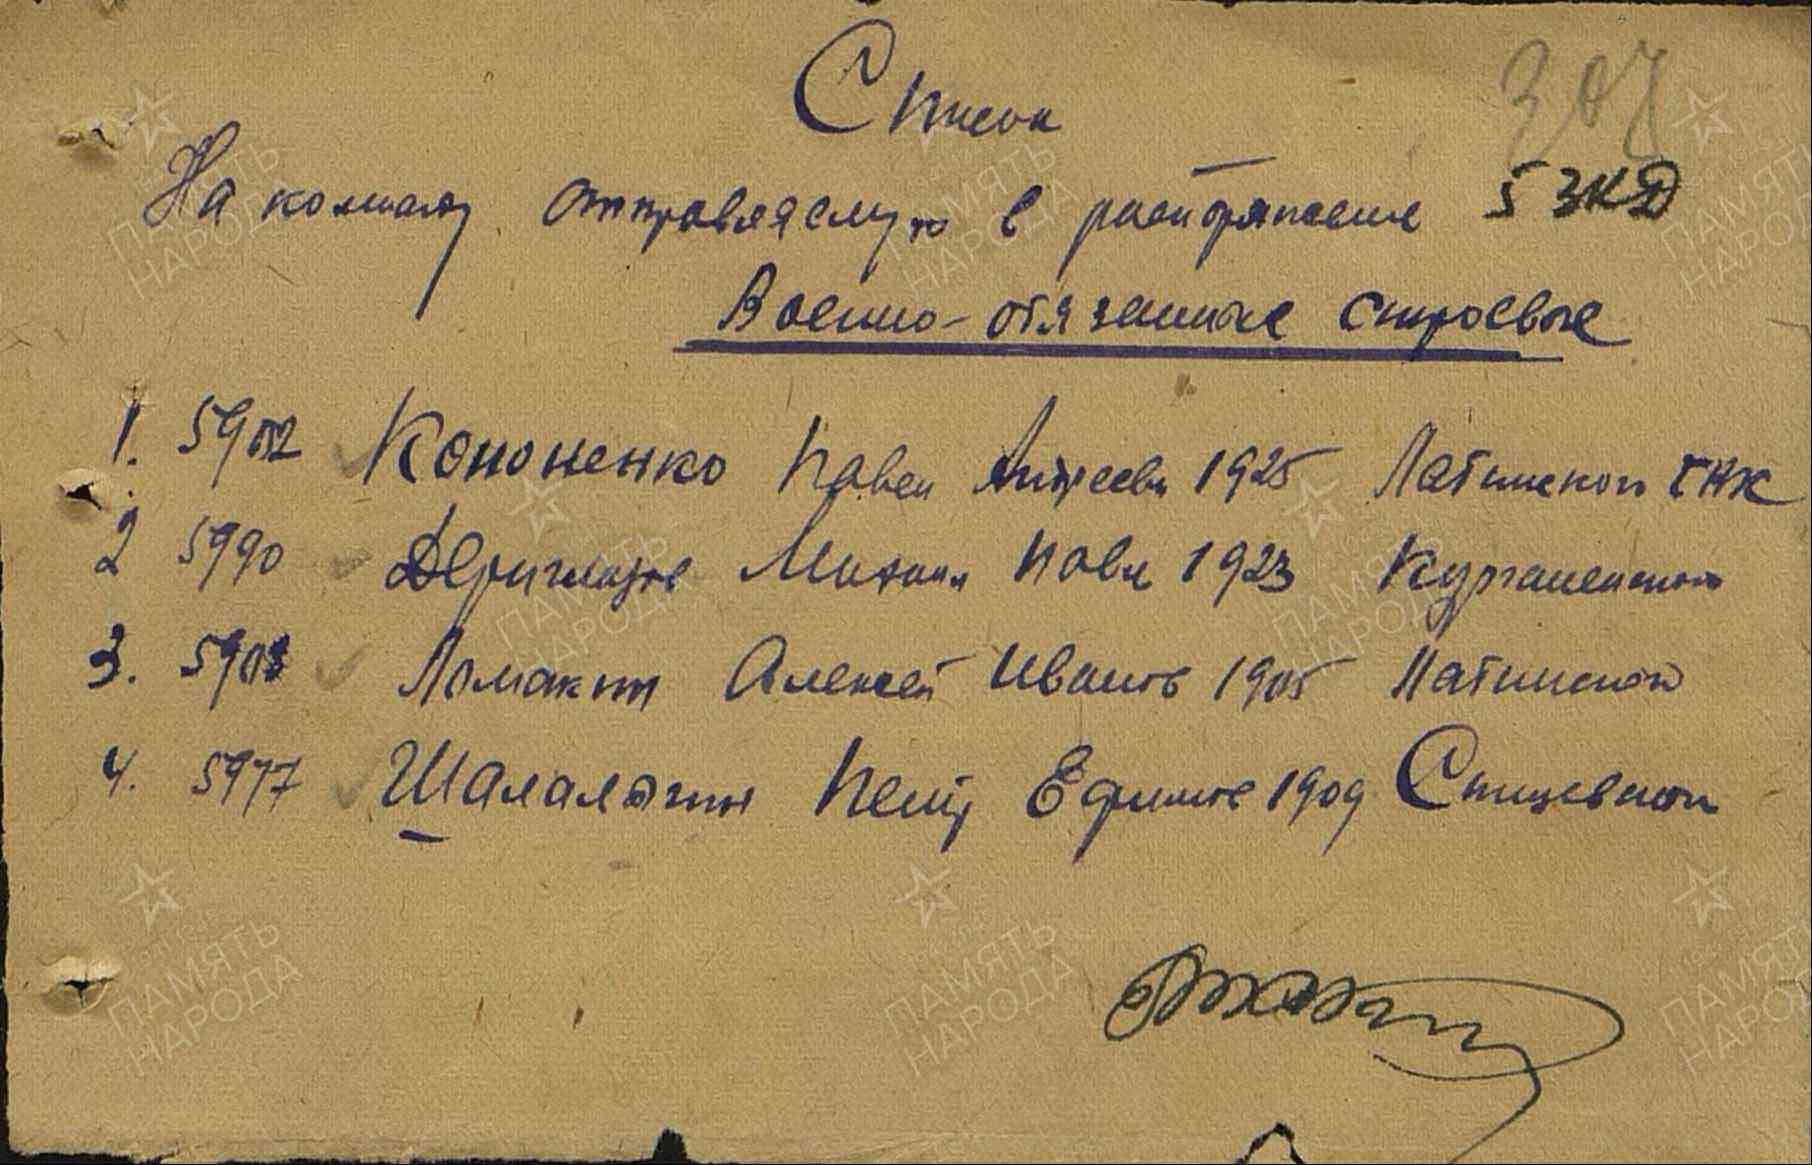 307
Список
На команду отправляемую в распоряжение 5 ЗКД
Военно-обязанные строевые
1. 5902 Кононенко Павел Андреев 1925 Латинском
2 5990 Дериглазов Михаил Павл 1923 Курганенском
3. 5903 Ломакин Алексей Иванов 1905 Латинском
4. 5977 Шалалыгин Петр Ефимов 1909 Спицевском
ПАМЯТЬ НАРОДА